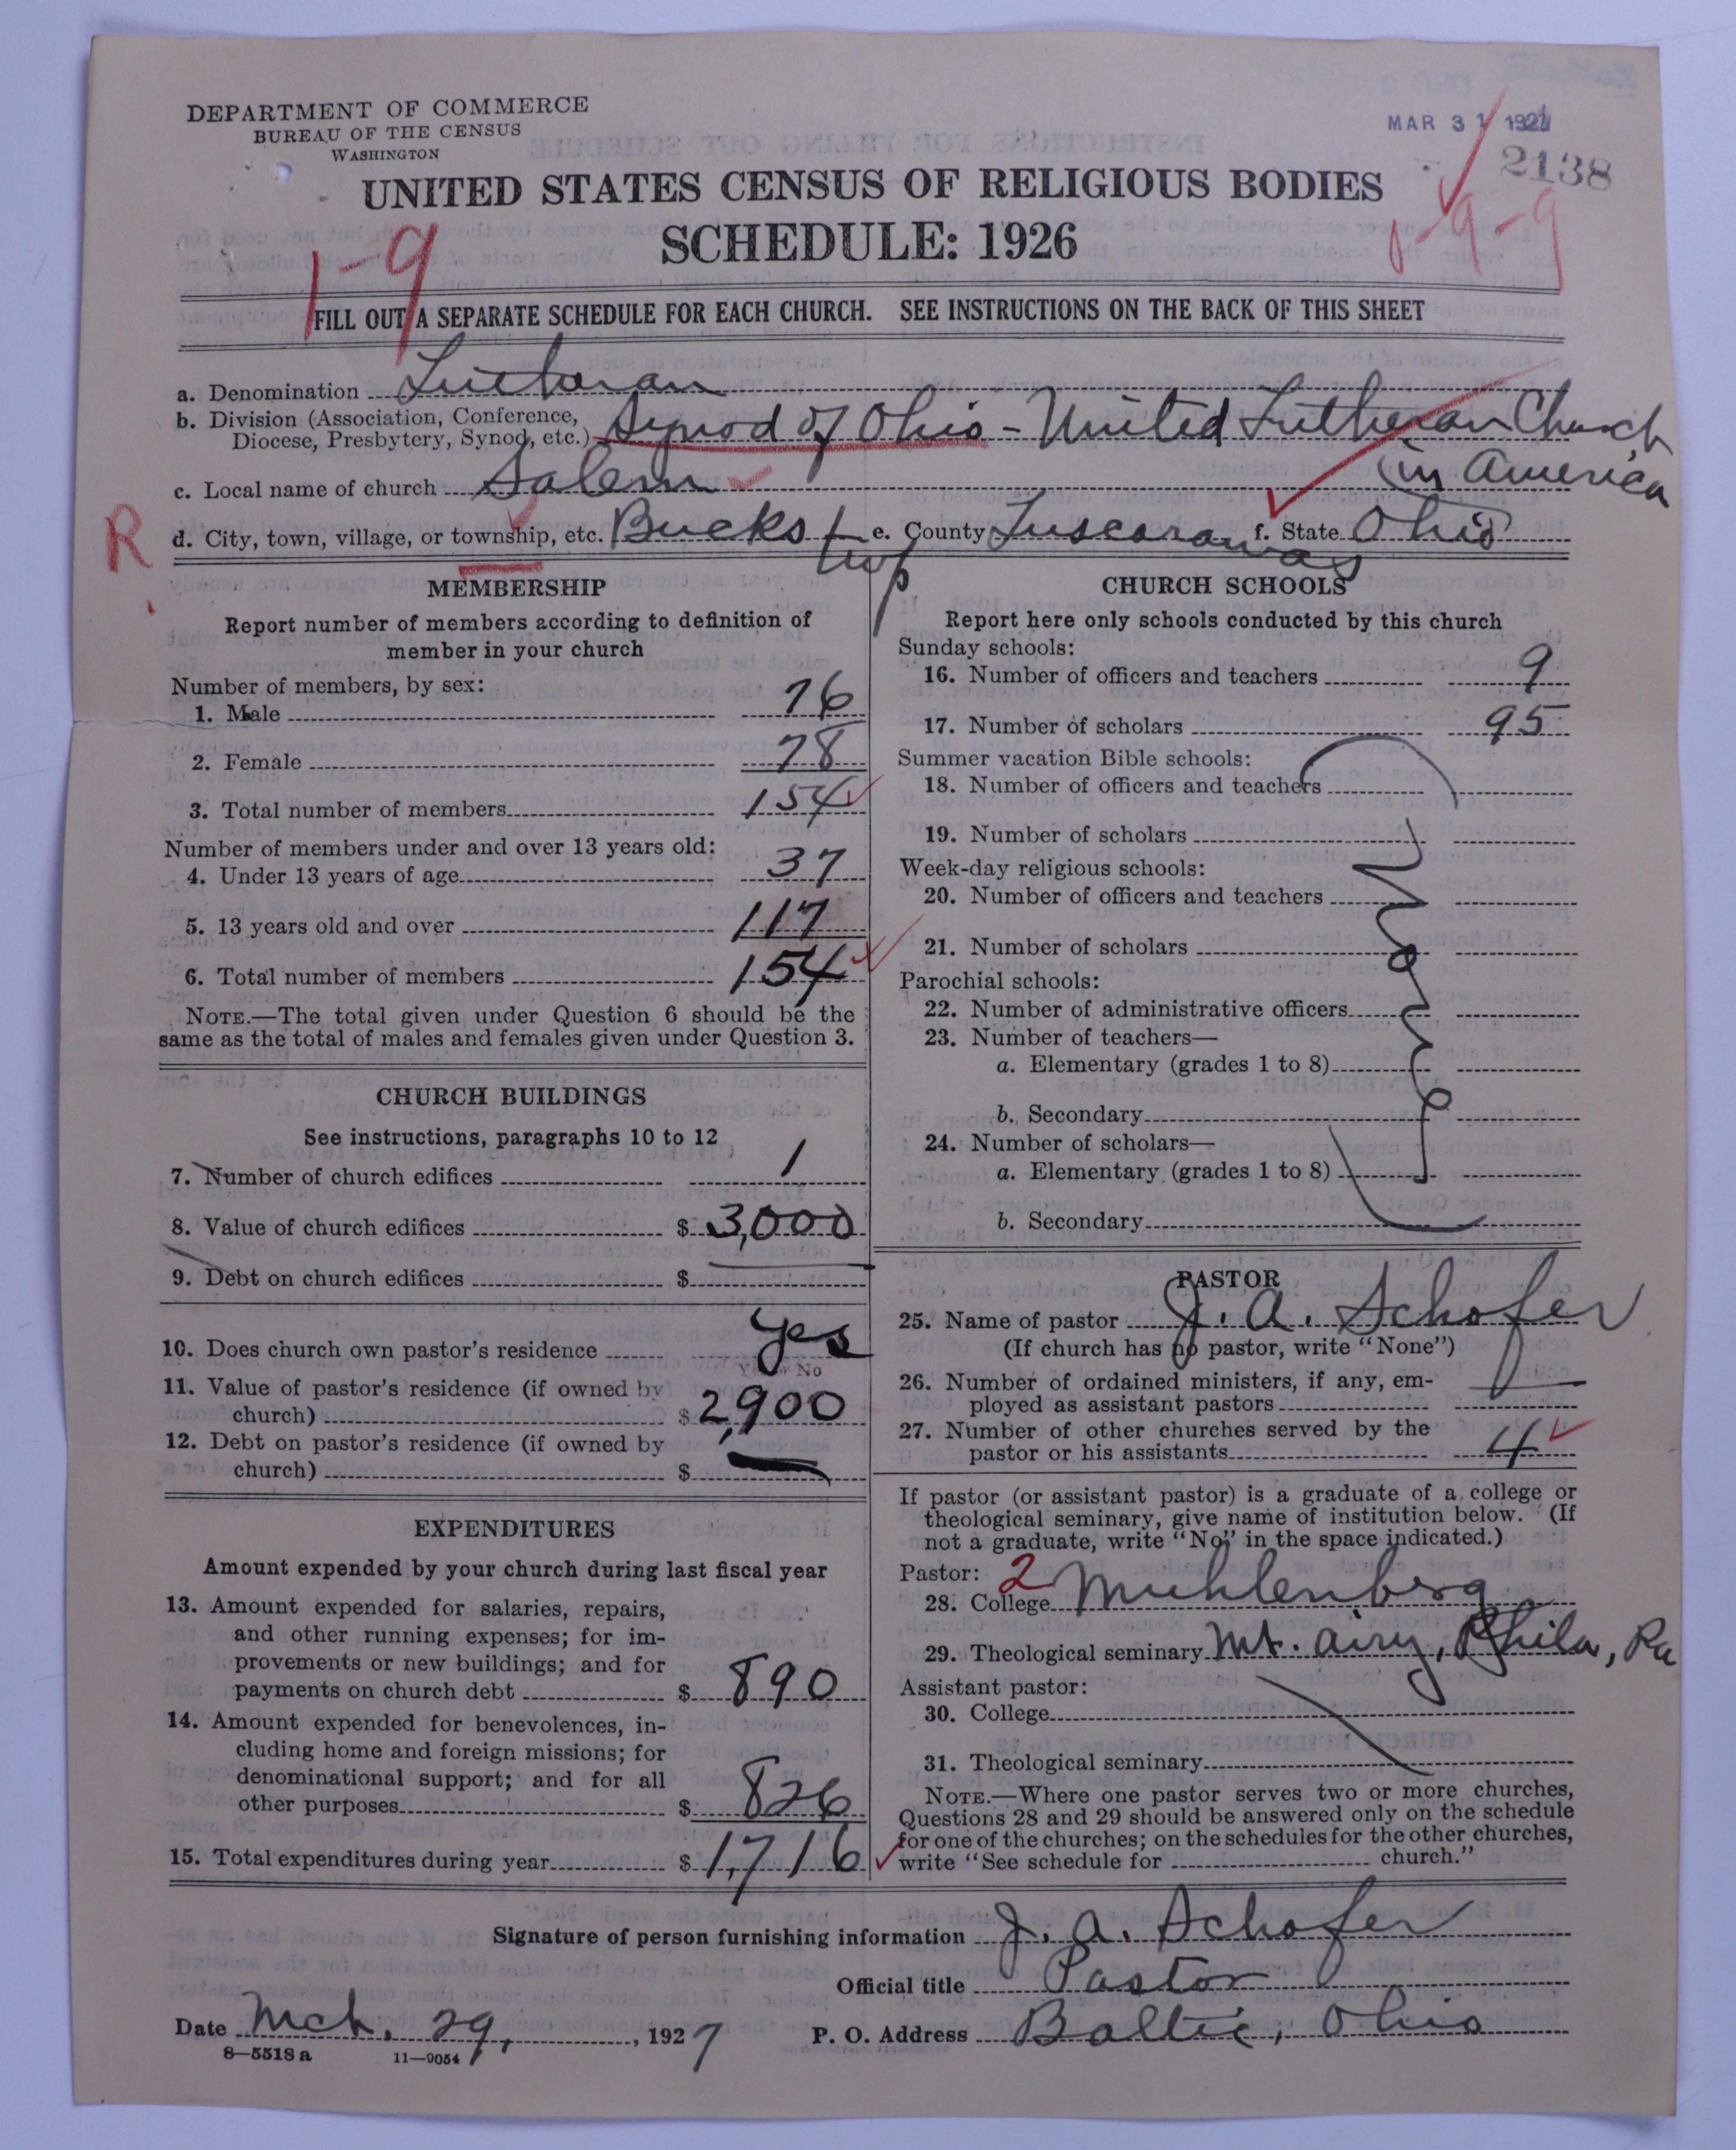 DEPARTMENT OF COMMERCE
BUREAU OF THE CENSUS
WASHINGTON
MAR 31 1927
2138
UNITED STATES CENSUS OF RELIGIOUS BODIES
SCHEDULE: 1926
1-9
1-9-9
FILL OUT A SEPARATE SCHEDULE FOR EACH CHURCH. SEE INSTRUCTIONS ON THE BACK OF THIS SHEET
a. Denomination Lutheran
b. Division (Association, Conference,
Diocese, Presbytery, Synod, etc.) Synod of Ohio - United Lutheran Church
in America
c. Local name of church Salem
R
d. City, town, village, or township, etc. Bucks twp e. County Tuscarawas f. State Ohio
MEMBERSHIP
Report number of members according to definition of
member in your church
Number of members, by sex:
1. Male 76
2. Female 78
3. Total number of members 154
Number of members under and over 13 years old:
4. Under 13 years of age 37
5. 13 years old and over 117
6. Total number of members 154
NOTE.—The total given under Question 6 should be the
same as the total of males and females given under Question 3.
CHURCH BUILDINGS
See instructions, paragraphs 10 to 12
7. Number of church edifices 1
8. Value of church edifices $ 3,000
9. Debt on church edifices $
10. Does church own pastor's residence yes
Yes or No
11. Value of pastor's residence (if owned by
church) $ 2,900
12. Debt on pastor's residence (if owned by
church) $ —
EXPENDITURES
Amount expended by your church during last fiscal year
13. Amount expended for salaries, repairs,
and other running expenses; for im-
provements or new buildings; and for
payments on church debt $ 890
14. Amount expended for benevolences, in-
cluding home and foreign missions; for
denominational support; and for all
other purposes $ 826
15. Total expenditures during year $ 1,716
CHURCH SCHOOLS
Report here only schools conducted by this church
Sunday schools:
16. Number of officers and teachers 9
17. Number of scholars 95
Summer vacation Bible schools:
18. Number of officers and teachers
19. Number of scholars
Week-day religious schools:
20. Number of officers and teachers
21. Number of scholars
Parochial schools:
22. Number of administrative officers
23. Number of teachers—
a. Elementary (grades 1 to 8)
b. Secondary
24. Number of scholars—
a. Elementary (grades 1 to 8)
b. Secondary
PASTOR
25. Name of pastor J. A. Schofer
(If church has no pastor, write "None")
26. Number of ordained ministers, if any, em-
ployed as assistant pastors —
27. Number of other churches served by the
pastor or his assistants 4
If pastor (or assistant pastor) is a graduate of a college or
theological seminary, give name of institution below. (If
not a graduate, write "No" in the space indicated.)
Pastor: 2
28. College Muhlenberg
29. Theological seminary Mt. Airy, Phila, Pa
Assistant pastor:
30. College
31. Theological seminary
NOTE.—Where one pastor serves two or more churches,
Questions 28 and 29 should be answered only on the schedule
for one of the churches; on the schedules for the other churches,
write "See schedule for church."
Signature of person furnishing information J. A. Schofer
Official title Pastor
Date Mch. 29, 1927 P. O. Address Baltic, Ohio
8—5518 a 11—9054